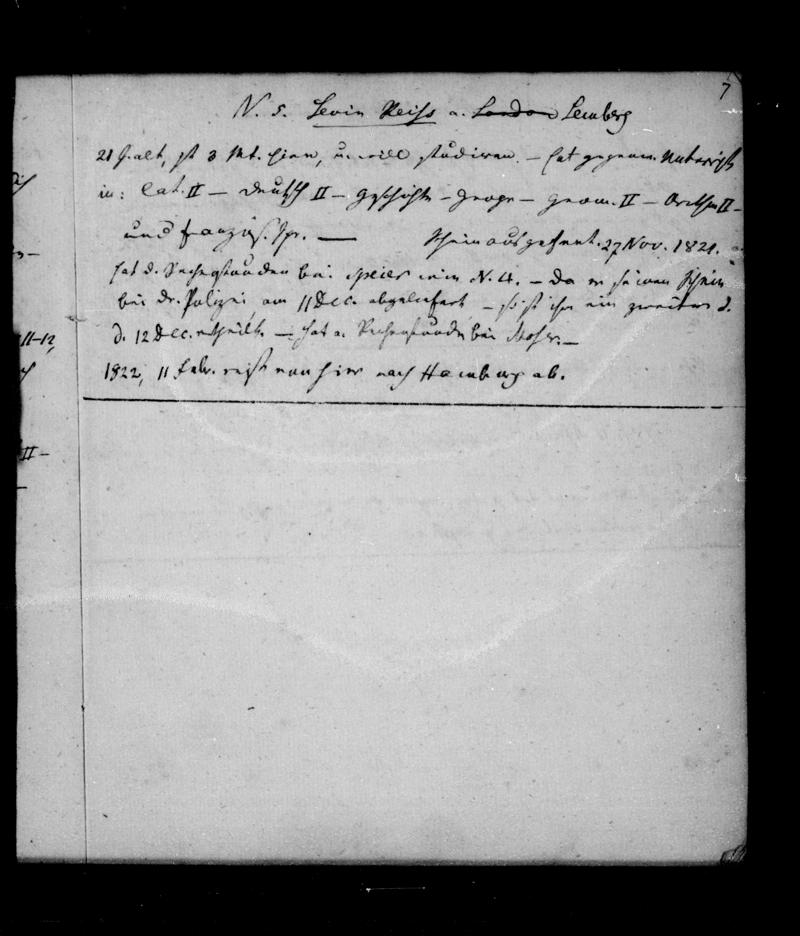 7
N. 5. Levin Reiss a. London Lemberg
21 J. alt, ist 3 Mt. hier, u. will studiren. – hat gegenw. Unterricht
in: Lat. II – Deutsch II – Geschichte – Geogr – Geom. II – Arithm II –
und Französ. Spr. — Schein ausgefert. 27 Nov. 1821.
hat d. Rechenstunden bei Meier wie N. 4. – Da er seinen Schein
bei dr. Polizei am 11 Dec. abgeliefert – so ist ihm ein zweiter d.
d. 12 Dec. ertheilt. – hat a. Rechenstunde bei Moser. –
1822, 11 Febr. reist von hier nach Hamburg ab.
11–12,
II –